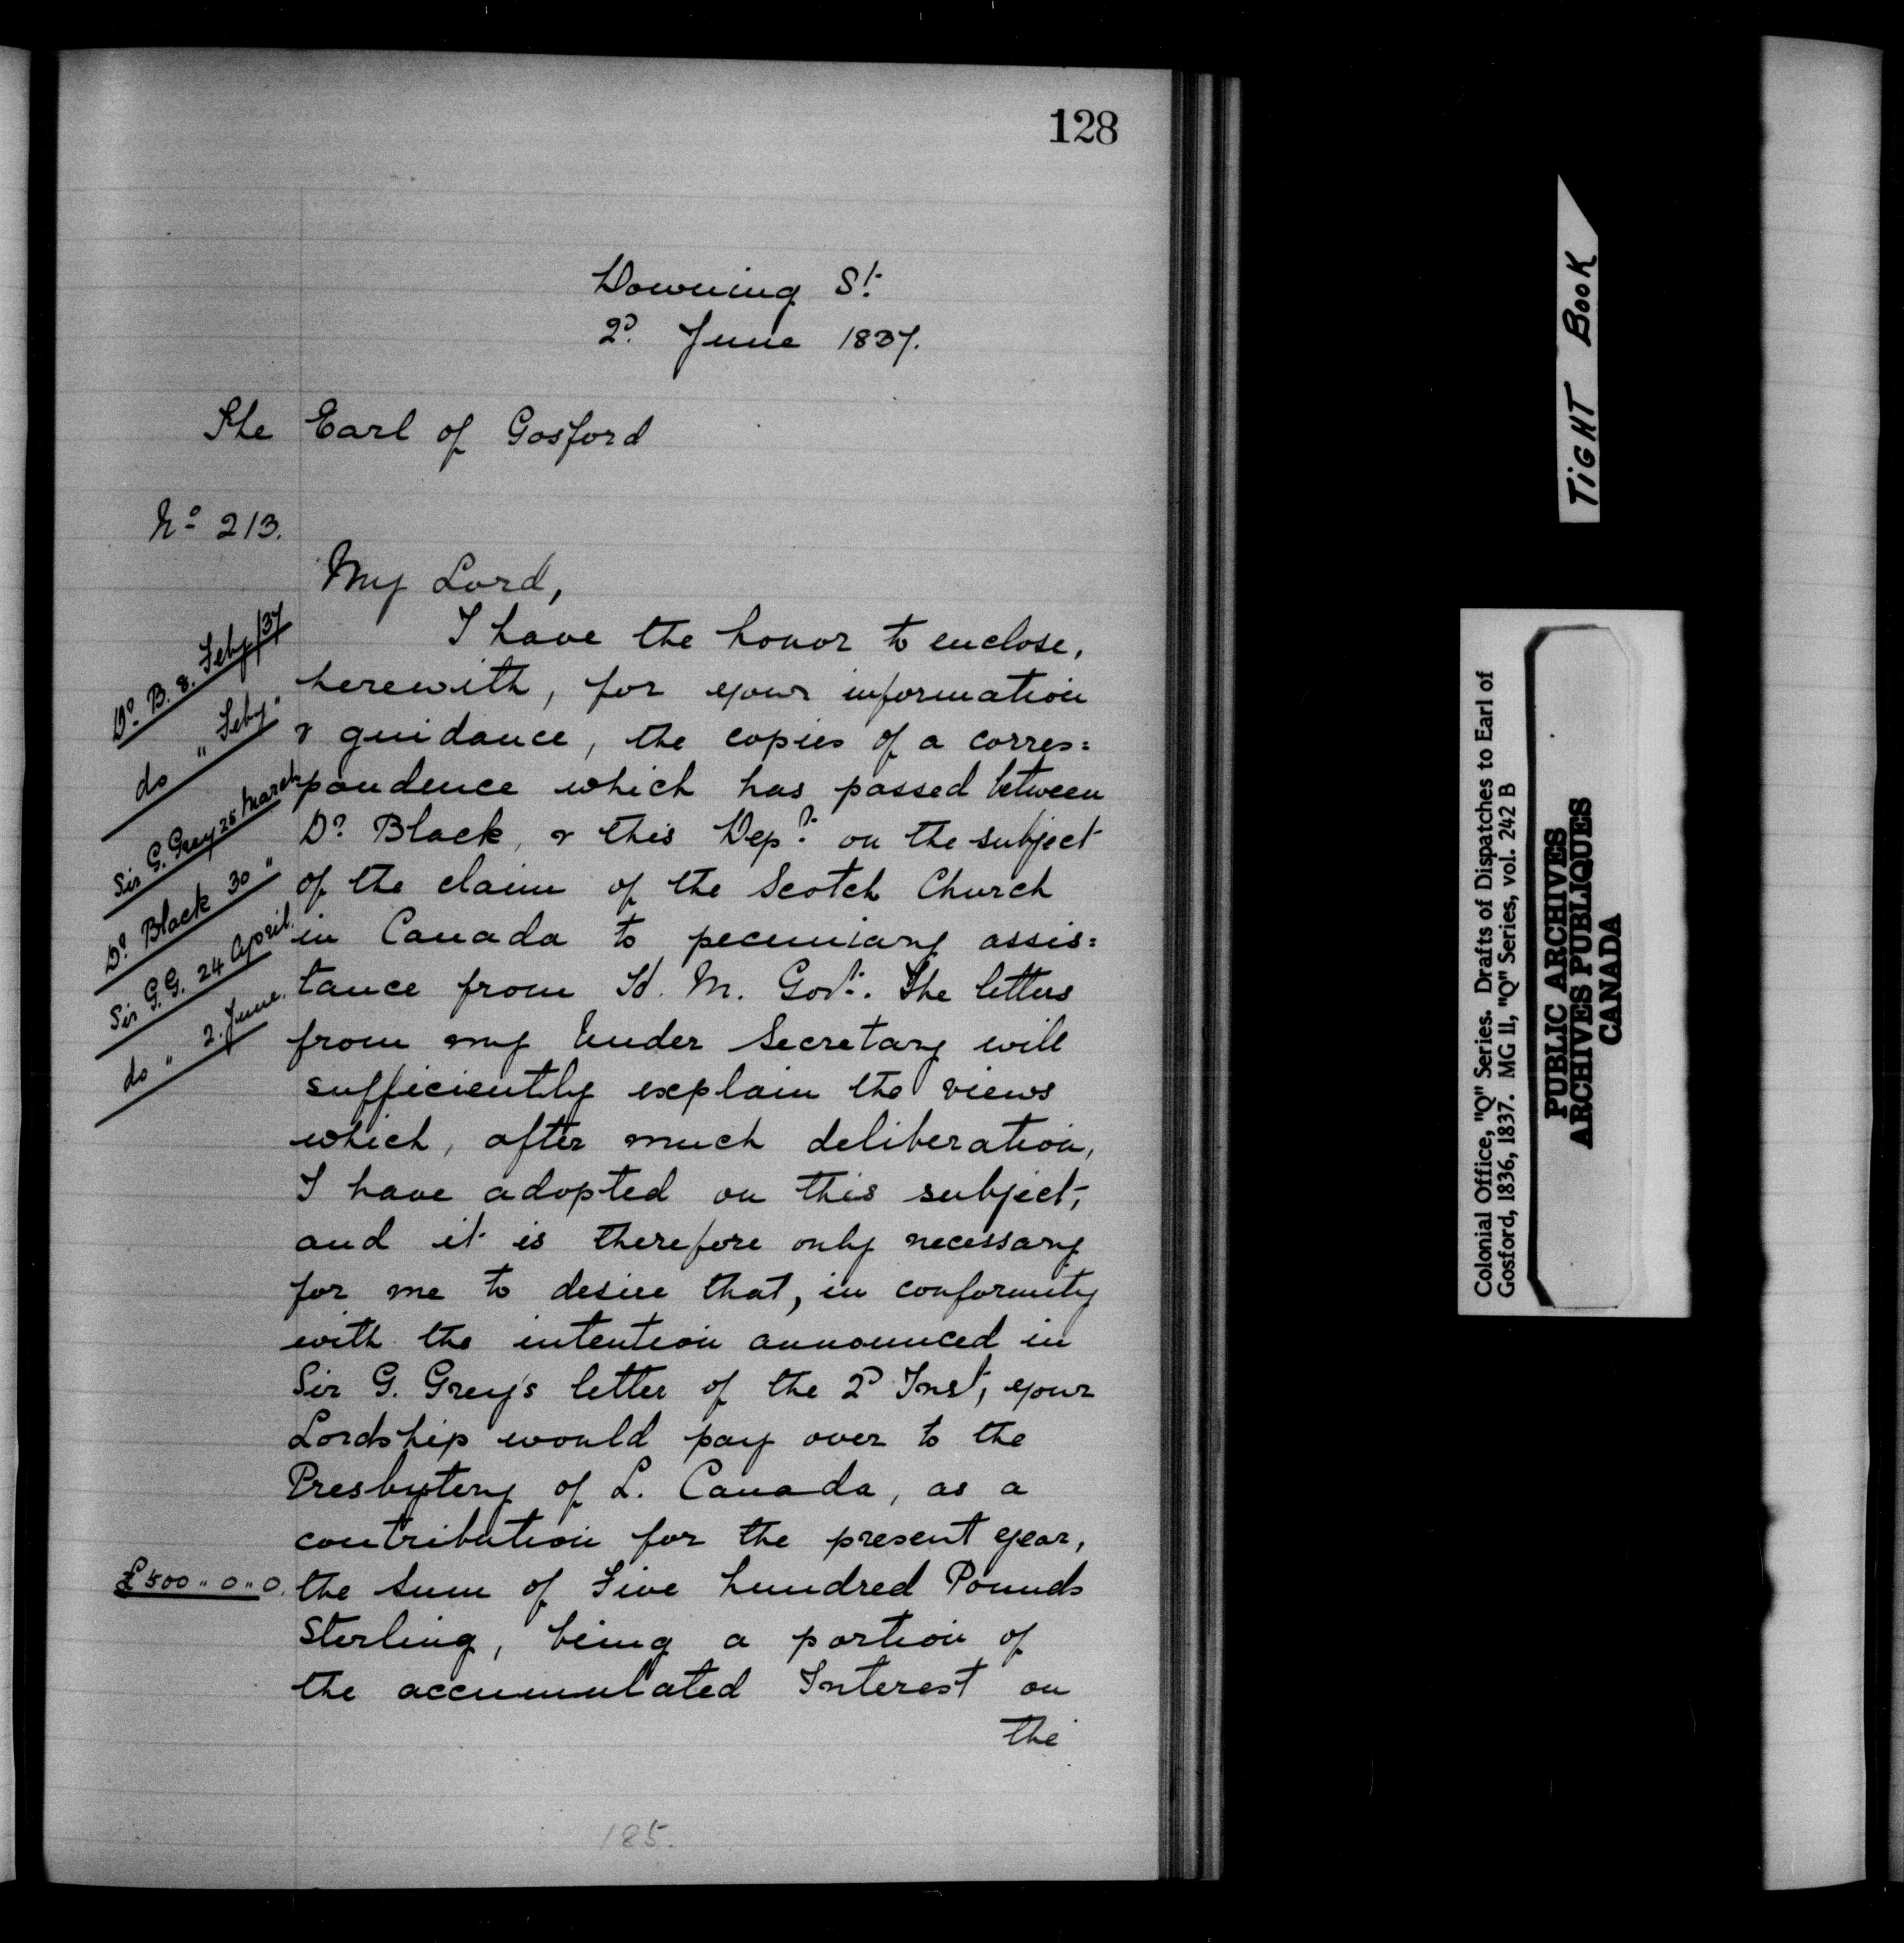 128
Downing St.
2d. June 1837.
The Earl of Gosford
No 213.
My Lord,
I have the honor to enclose,
herewith, for your information
& guidance, the copies of a corres=
pondence which has passed between
Dr. Black, & this Dept. on the subject
of the claim of the Scotch Church
in Canada to pecuniary assis=
tance from H. M. Govt. The letters
from my Under Secretary will
sufficiently explain the views
which, after much deliberation,
I have adopted on this subject,
and it is therefore only necessary
for me to desire that, in conformity
with the intention announced in
Sir G. Grey's letter of the 2d Inst, your
Lordship would pay over to the
Presbytery of L. Canada, as a
contribution for the present year,
the sum of Five hundred Pounds
Sterling, being a portion of
the accumulated Interest on
the
Dr. B. 8. Feby/37
do " Feby "
Sir G. Grey 25 March
Dr. Black 30 "
Sir G. G. 24 April.
do " 2. June.
£500 " 0 " 0.
185.
TIGHT BOOK
Colonial Office, "Q" Series. Drafts of Dispatches to Earl of
Gosford, 1836, 1837. MG 11, "Q" Series, vol. 242 B
PUBLIC ARCHIVES
ARCHIVES PUBLIQUES
CANADA